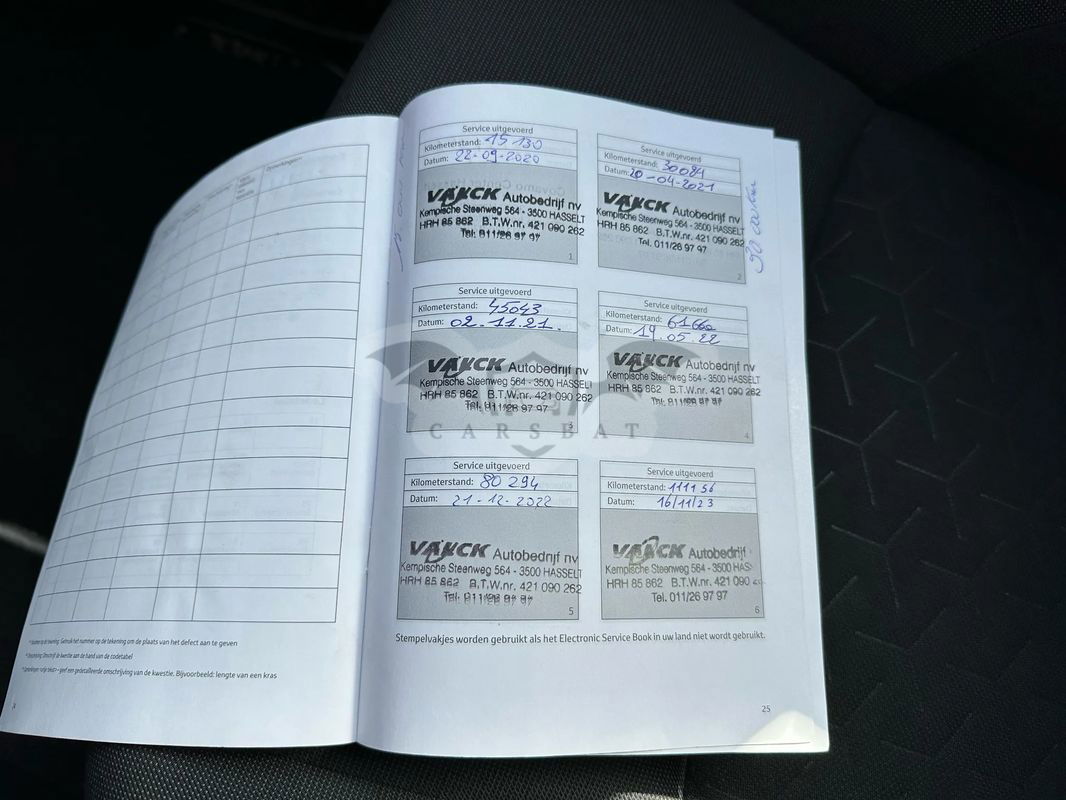 Service uitgevoerd
Kilometerstand: 15 130
Datum: 22-09-2020
VANCK Autobedrijf nv
Kempische Steenweg 564 - 3500 HASSELT
HRH 85 862 B.T.W.nr. 421 090 262
Tel. 011/26 97 97
1
Service uitgevoerd
Kilometerstand: 30084
Datum: 20-04-2021
VANCK Autobedrijf nv
Kempische Steenweg 564 - 3500 HASSELT
HRH 85 862 B.T.W.nr. 421 090 262
Tel. 011/26 97 97
2
Service uitgevoerd
Kilometerstand: 45043
Datum: 02.11.21.
VANCK Autobedrijf nv
Kempische Steenweg 564 - 3500 HASSELT
HRH 85 862 B.T.W.nr. 421 090 262
Tel. 011/26 97 97
3
Service uitgevoerd
Kilometerstand:
Datum: 19.05.22
VANCK Autobedrijf nv
Kempische Steenweg 564 - 3500 HASSELT
HRH 85 862 B.T.W.nr. 421 090 262
Tel. 011/26 97 97
4
CARSBAT
Service uitgevoerd
Kilometerstand: 80 294
Datum: 21-12-2022
VANCK Autobedrijf nv
Kempische Steenweg 564 - 3500 HASSELT
HRH 85 862 B.T.W.nr. 421 090 262
Tel. 011/26 97 97
5
Service uitgevoerd
Kilometerstand: 111156
Datum: 16/11/23
VANCK Autobedrijf
Kempische Steenweg 564 - 3500 HAS
HRH 85 862 B.T.W.nr. 421 090
Tel. 011/26 97 97
6
Stempelvakjes worden gebruikt als het Electronic Service Book in uw land niet wordt gebruikt.
25
Gebruik het nummer op de tekening om de plaats van het defect aan te geven
Omschrijf de kwestie aan de hand van de codetabel
geef een gedetailleerde omschrijving van de kwestie. Bijvoorbeeld: lengte van een kras